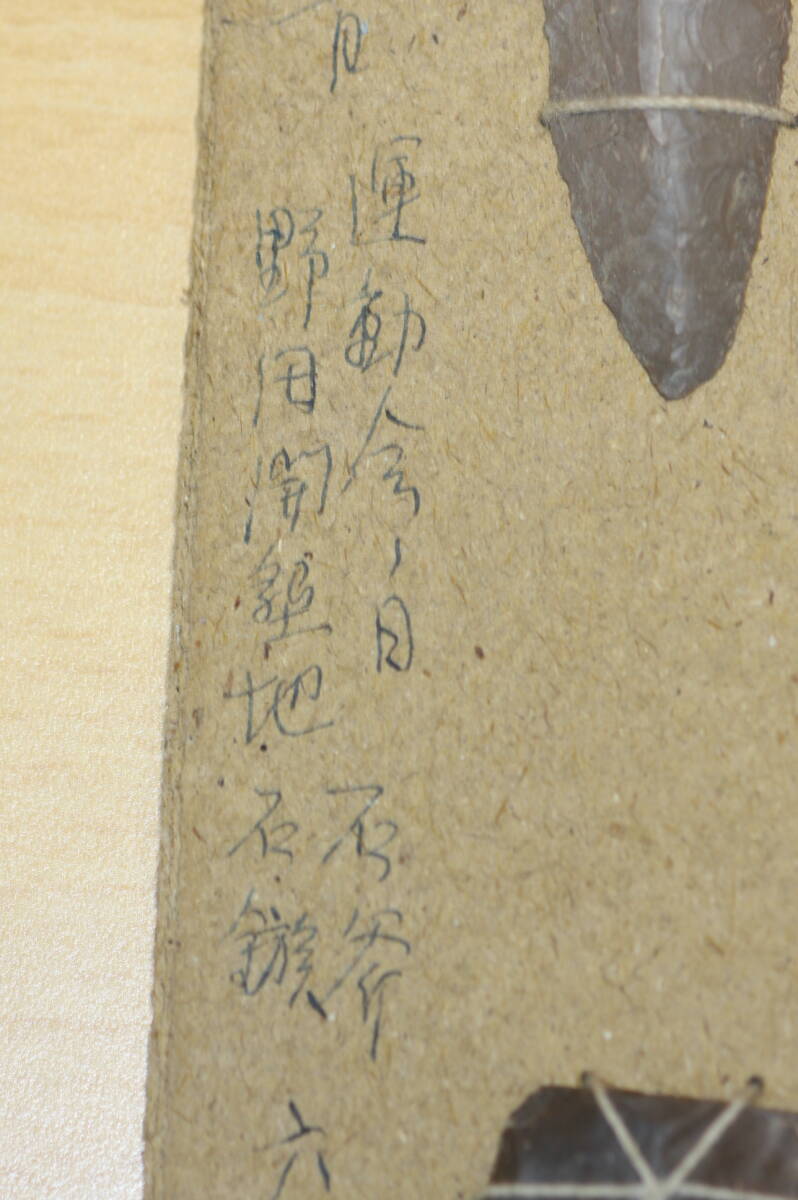 運動会ノ日 石斧
野田開墾地 石鏃 六